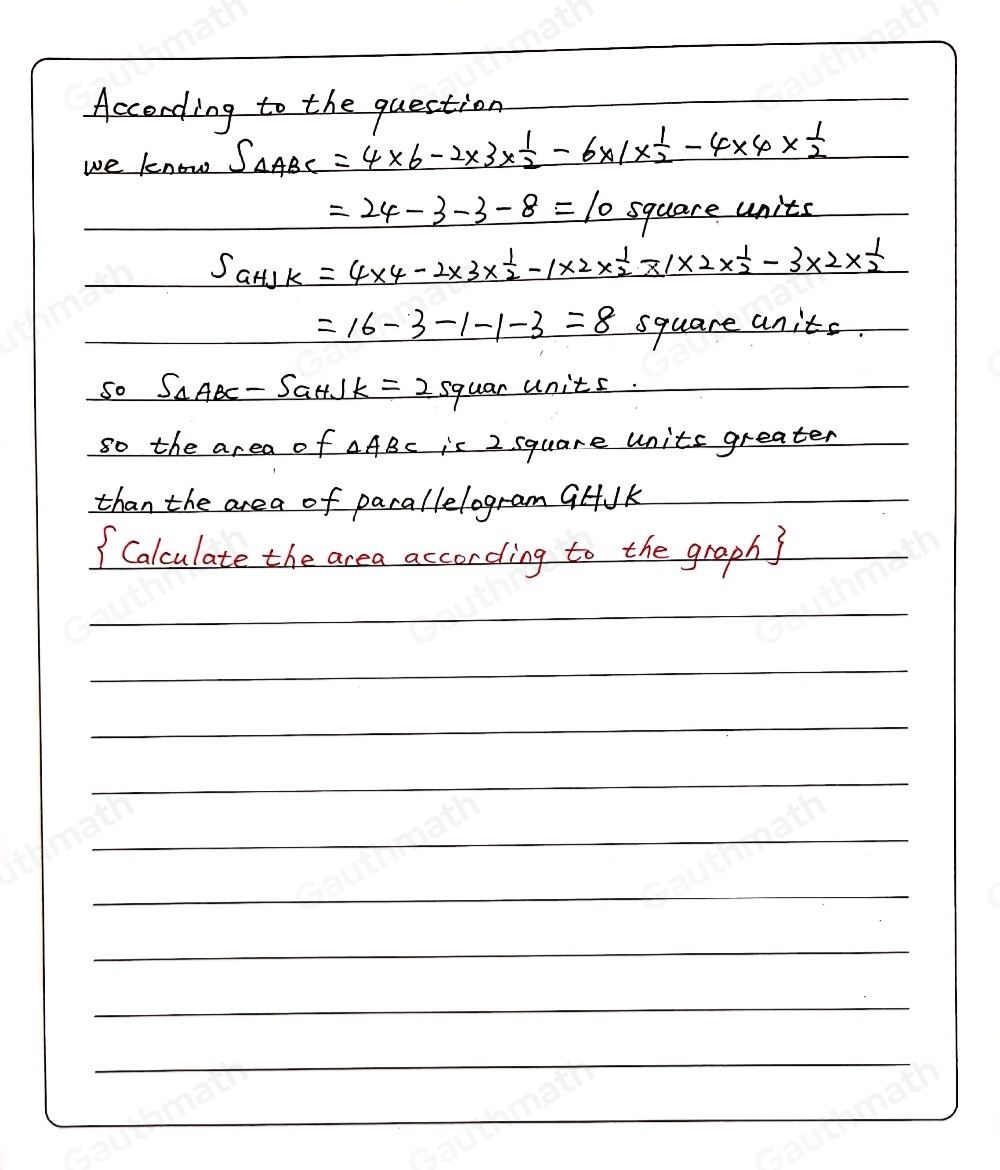 According to the question
we know S△ABC = 4×6-2×3×1/2 - 6×1×1/2 - 4×4×1/2
= 24-3-3-8 = 10 square units
SGHJK = 4×4-2×3×1/2-1×2×1/2-1×2×1/2-3×2×1/2
= 16-3-1-1-3 = 8 square units.
so S△ABC - SGHJK = 2 squar units.
so the area of △ABC is 2 square units greater
than the area of parallelogram GHJK
{Calculate the area according to the graph}
Gauthmath